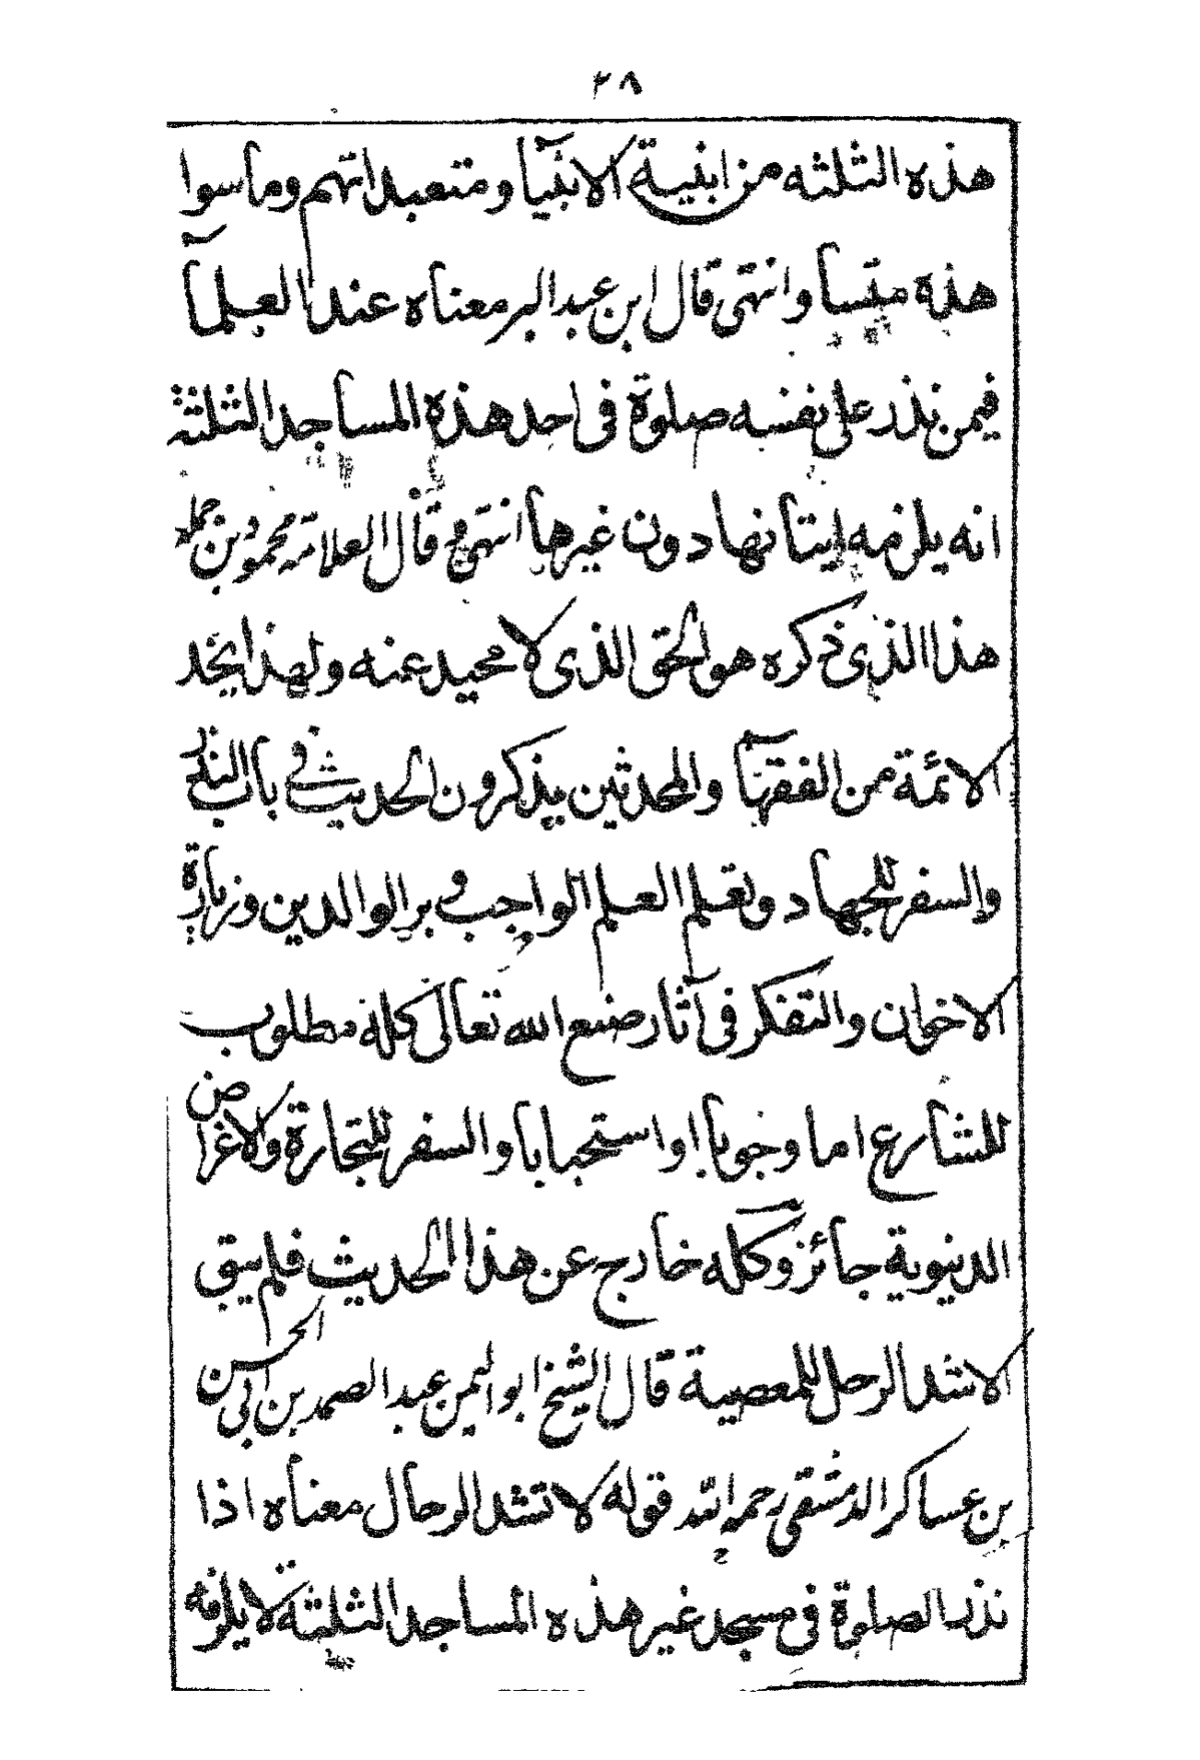 ٢٨
هذه الثلثه من ابنية الانبيآ ومتعبداتهم وما سوا
هذه متسا وانتهى قال ابن عبد البر معناه عند العلمآ
فيمن نذر على نفسه صلوة فى احد هذه المساجد الثلثة
انه يلزمه ايتانها دون غيرها انتهى قال العلامة محمود بن حملد
هذا الذى ذكره هو الحق الذى لا محيد عنه ولهذا يجد
الائمة من الفقهآ والمحدثين يذكرون الحديث فى باب النذر
والسفر للجهاد وتعلم العلم الواجب وبر الوالدين وزيارة
الاخوان والتفكر فى آثار صنع الله تعالى كله مطلوب
للشارع اما وجوبا او استحبابا والسفر للتجارة والاغراض
الدينوية جائز وكله خارج عن هذا الحديث فلم يبق
الا شد الرحل للمعصية قال الشيخ ابو اليمن عبد الصمد بن ابى الحسن
بن عساكر الدمشقى رحمه الله قوله لا تشد الرحال معناه اذا
نذر الصلوة فى مسجد غير هذه المساجد الثلثة لا يلزمه